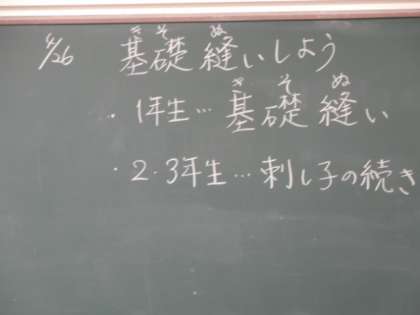 6/26 基礎縫いしよう
・1年生…基礎縫い
・2・3年生…刺し子の続き